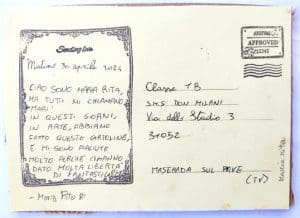 Sending love
30 aprile 2024
CIAO SONO MARIA RITA,
MA TUTTI MI CHIAMANO
MARI!
IN QUESTI GIORNI,
IN ARTE, ABBIAMO
FATTO QUESTO CARTOLINE,
E MI SONO PIACIUTE
MOLTO PERCHÉ CI HANNO
DATO MOLTA LIBERTÀ
DI FANTASTICARE
- Maria Rita
Classe 1B
SMS DON MILANI
Via dello Studio 3
31052
MASERADA SUL PIAVE
(TV)
APPROVED
12345
Maria Rita